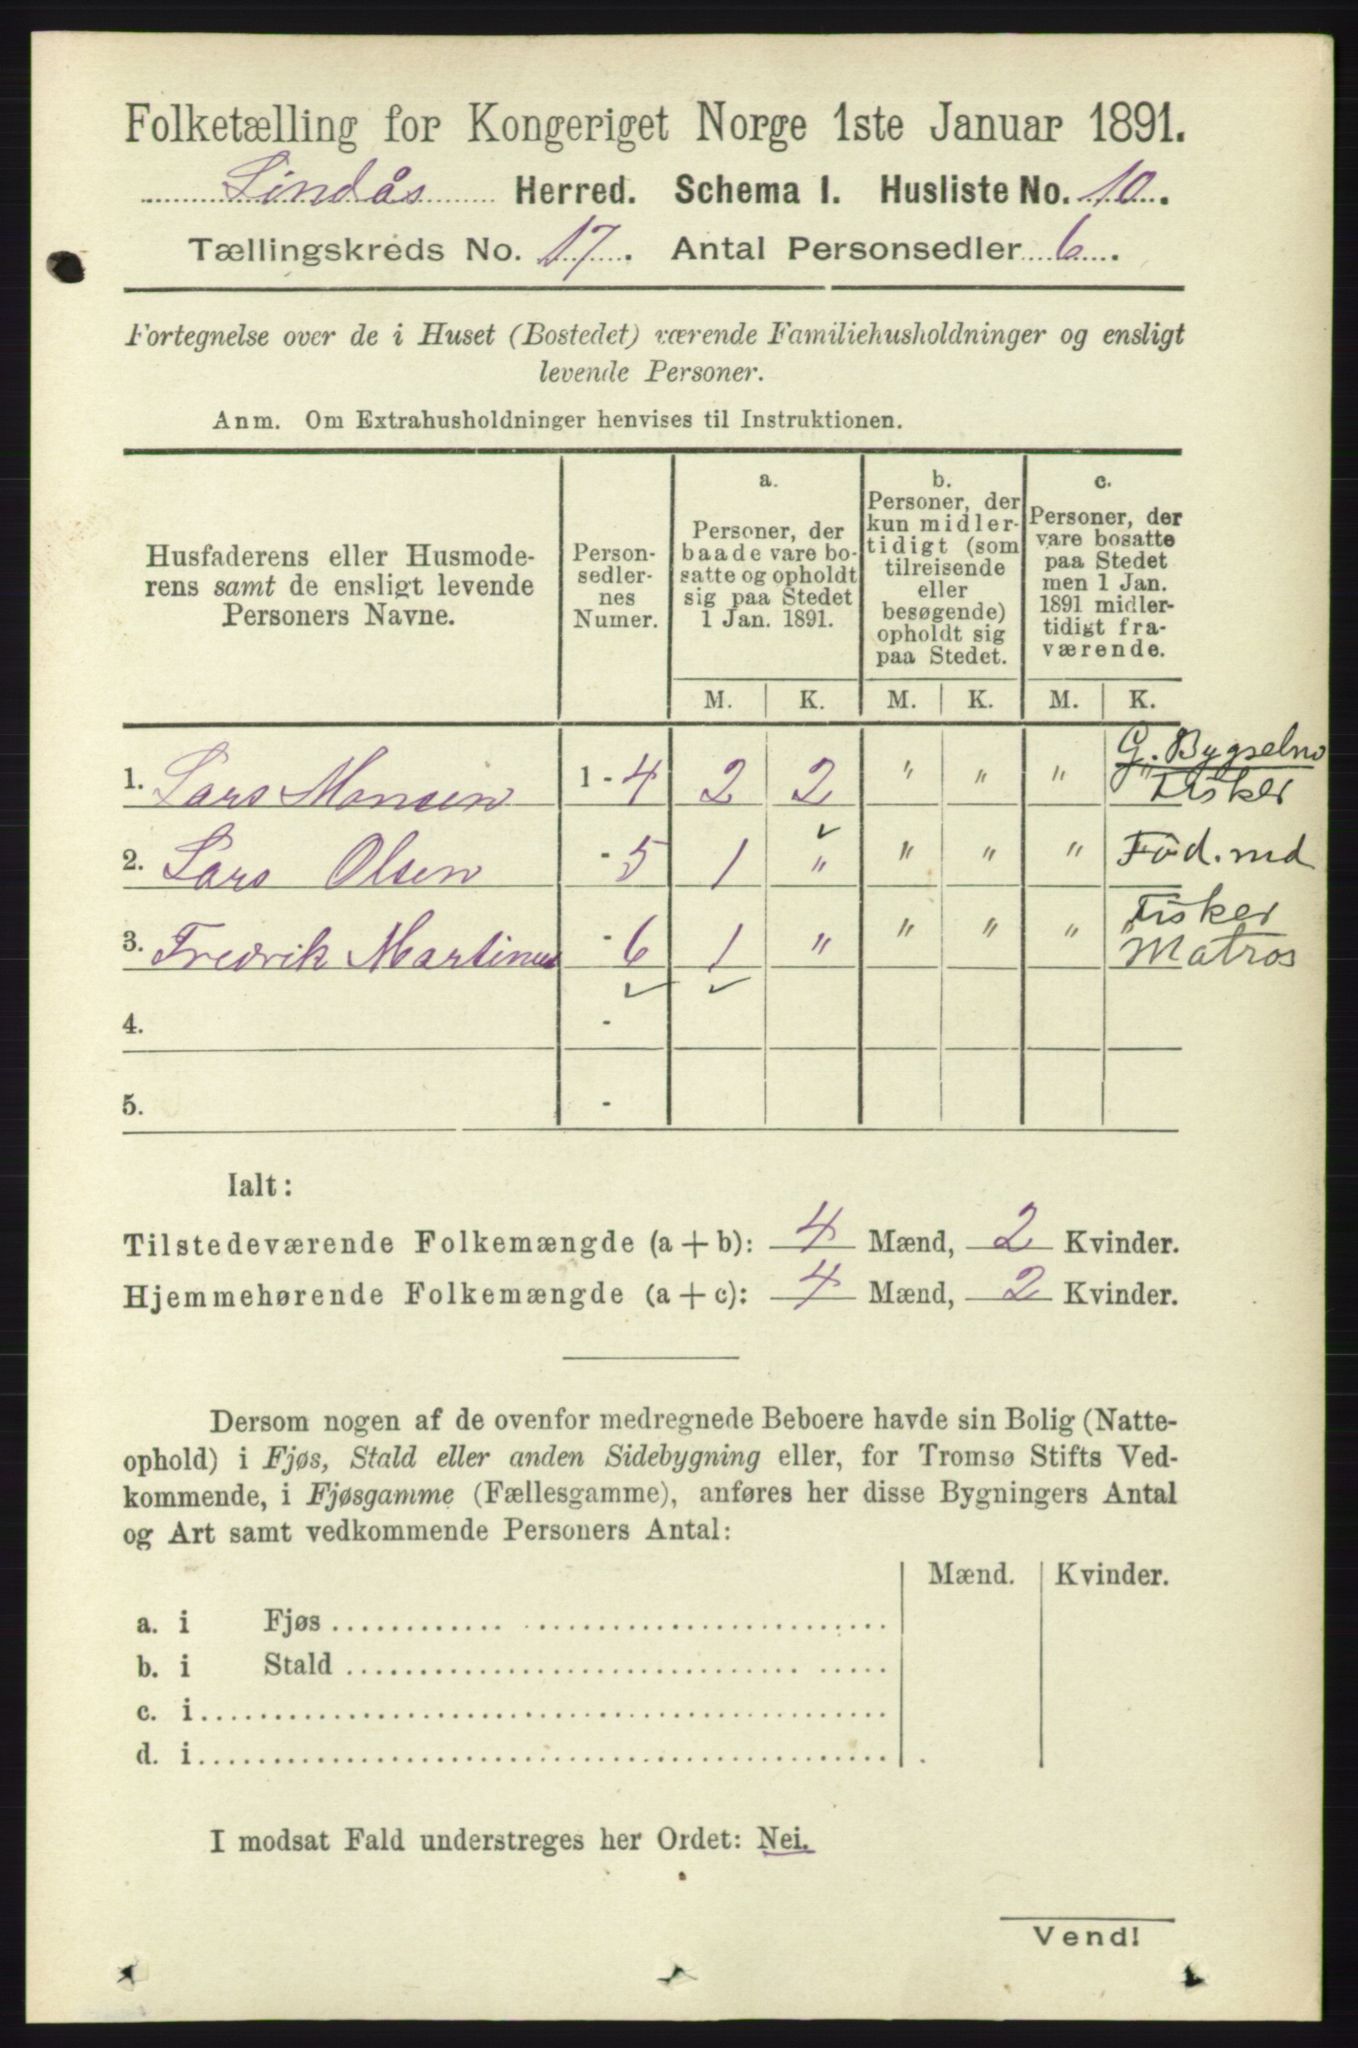 Folketælling for Kongeriget Norge 1ste Januar 1891.
Lindås Herred. Schema I. Husliste No. 10.
Tællingskreds No. 17. Antal Personsedler 6.
Fortegnelse over de i Huset (Bostedet) værende Familiehusholdninger og ensligt
levende Personer.
Anm. Om Extrahusholdninger henvises til Instruktionen.
Husfaderens eller Husmode-
rens samt de ensligt levende
Personers Navne.
Person-
sedler-
nes
Numer.
a.
Personer, der
baade vare bo-
satte og opholdt
sig paa Stedet
1 Jan. 1891.
b.
Personer, der
kun midler-
tidigt (som
tilreisende
eller
besøgende)
opholdt sig
paa Stedet.
c.
Personer, der
vare bosatte
paa Stedet
men 1 Jan.
1891 midler-
tidigt fra-
værende.
M. K. M. K. M. K.
1. Lars Monsen 1 - 4 2 2 " " " G. Bygselmd
Fisker
2. Lars Olsen - 5 1 " " " " Fød. md
3. Fredrik Martinus - 6 1 " " " " Fisker
Matros
4. -
5. -
Ialt:
Tilstedeværende Folkemængde (a + b): 4 Mænd, 2 Kvinder.
Hjemmehørende Folkemængde (a + c): 4 Mænd, 2 Kvinder.
Dersom nogen af de ovenfor medregnede Beboere havde sin Bolig (Natte-
ophold) i Fjøs, Stald eller anden Sidebygning eller, for Tromsø Stifts Ved-
kommende, i Fjøsgamme (Fællesgamme), anføres her disse Bygningers Antal
og Art samt vedkommende Personers Antal:
Mænd. Kvinder.
a. i Fjøs
b. i Stald
c. i
d. i
I modsat Fald understreges her Ordet: Nei.
Vend!